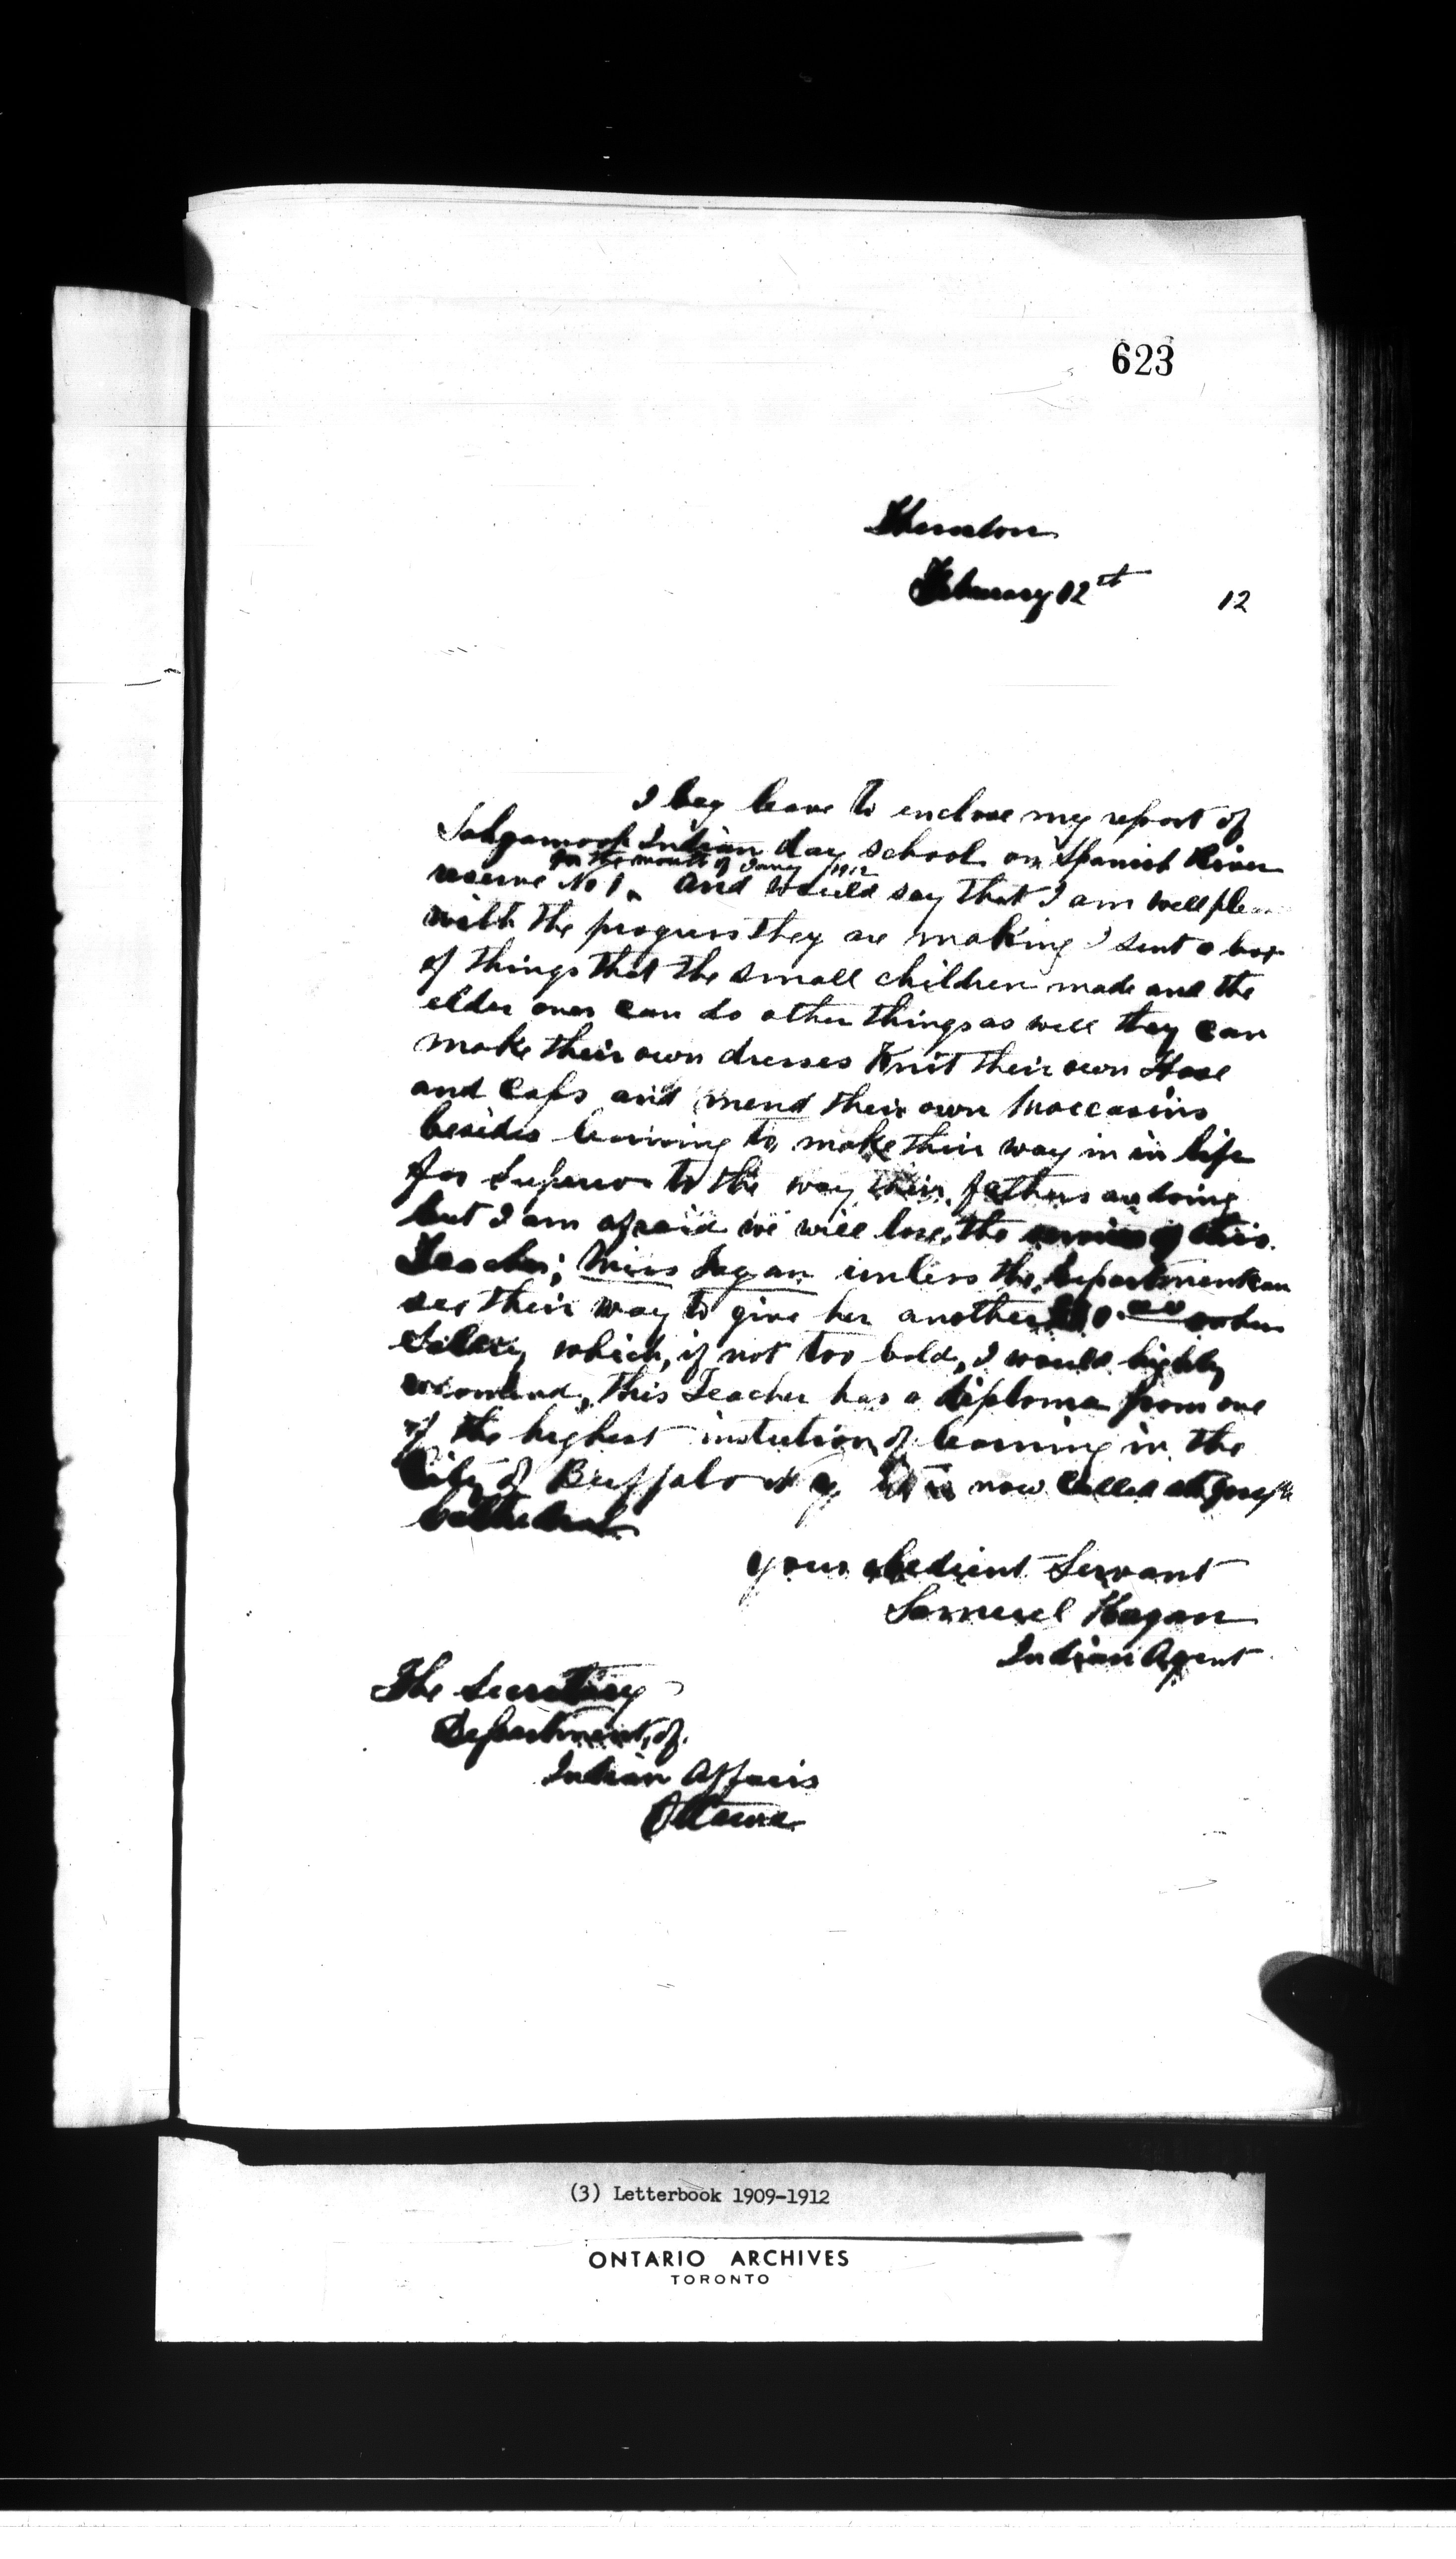 623
Thessalon
February 12th 12
I beg leave to enclose my report of
Indian day school on Spanish River
for the month of Jany 1912
reserve No 1. and would say that I am well
with the progress they are making I sent a box
of things that the small children made and the
elder ones can do other things as well they can
make their own dresses Knit their own Hose
and Caps and mend their own Moccasins
besides learning to make their way in in life
far Superior to the way their fathers are doing
but I am afraid we will lose the service of this
Teacher; Miss unless the Department can
see their way to give her another
Salary which, if not too bold, I would highly
recomend, This Teacher has a diploma from one
of the highest of learning in the
City of Buffalo N Y now Called St Joseph
Cathedral
your obedient Servant
Samuel Hagan
Indian Agent
The Secretary
Department of
Indian Affairs
Ottawa
(3) Letterbook 1909-1912
ONTARIO ARCHIVES
TORONTO